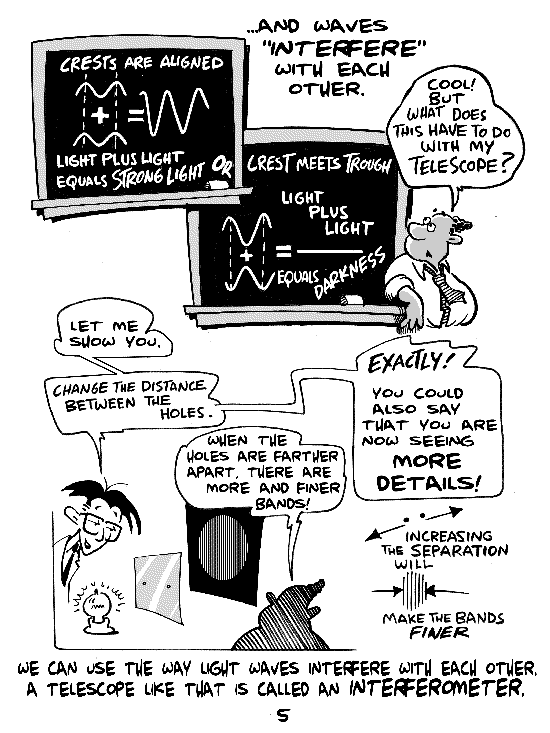 ...AND WAVES
"INTERFERE"
WITH EACH
OTHER.
CRESTS ARE ALIGNED
+ =
LIGHT PLUS LIGHT
EQUALS STRONG LIGHT OR
CREST MEETS TROUGH
LIGHT
PLUS
LIGHT
+ =
EQUALS DARKNESS
COOL!
BUT
WHAT DOES
THIS HAVE TO DO
WITH MY
TELESCOPE?
LET ME
SHOW YOU.
CHANGE THE DISTANCE
BETWEEN THE
HOLES.
WHEN THE
HOLES ARE FARTHER
APART, THERE ARE
MORE AND FINER
BANDS!
EXACTLY!
YOU COULD
ALSO SAY
THAT YOU ARE
NOW SEEING
MORE
DETAILS!
INCREASING
THE SEPARATION
WILL
MAKE THE BANDS
FINER
WE CAN USE THE WAY LIGHT WAVES INTERFERE WITH EACH OTHER.
A TELESCOPE LIKE THAT IS CALLED AN INTERFEROMETER.
5